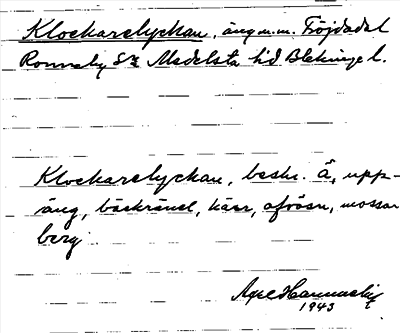 Klockarelyckan, äng m.m. Fröjdadal
Ronneby sn Medelsta hd Blekinge l.
Klockarelyckan, beskr. Å, upp-
äng, bäckränel, kärr, ofösn, mossar
berg
Axel
1943